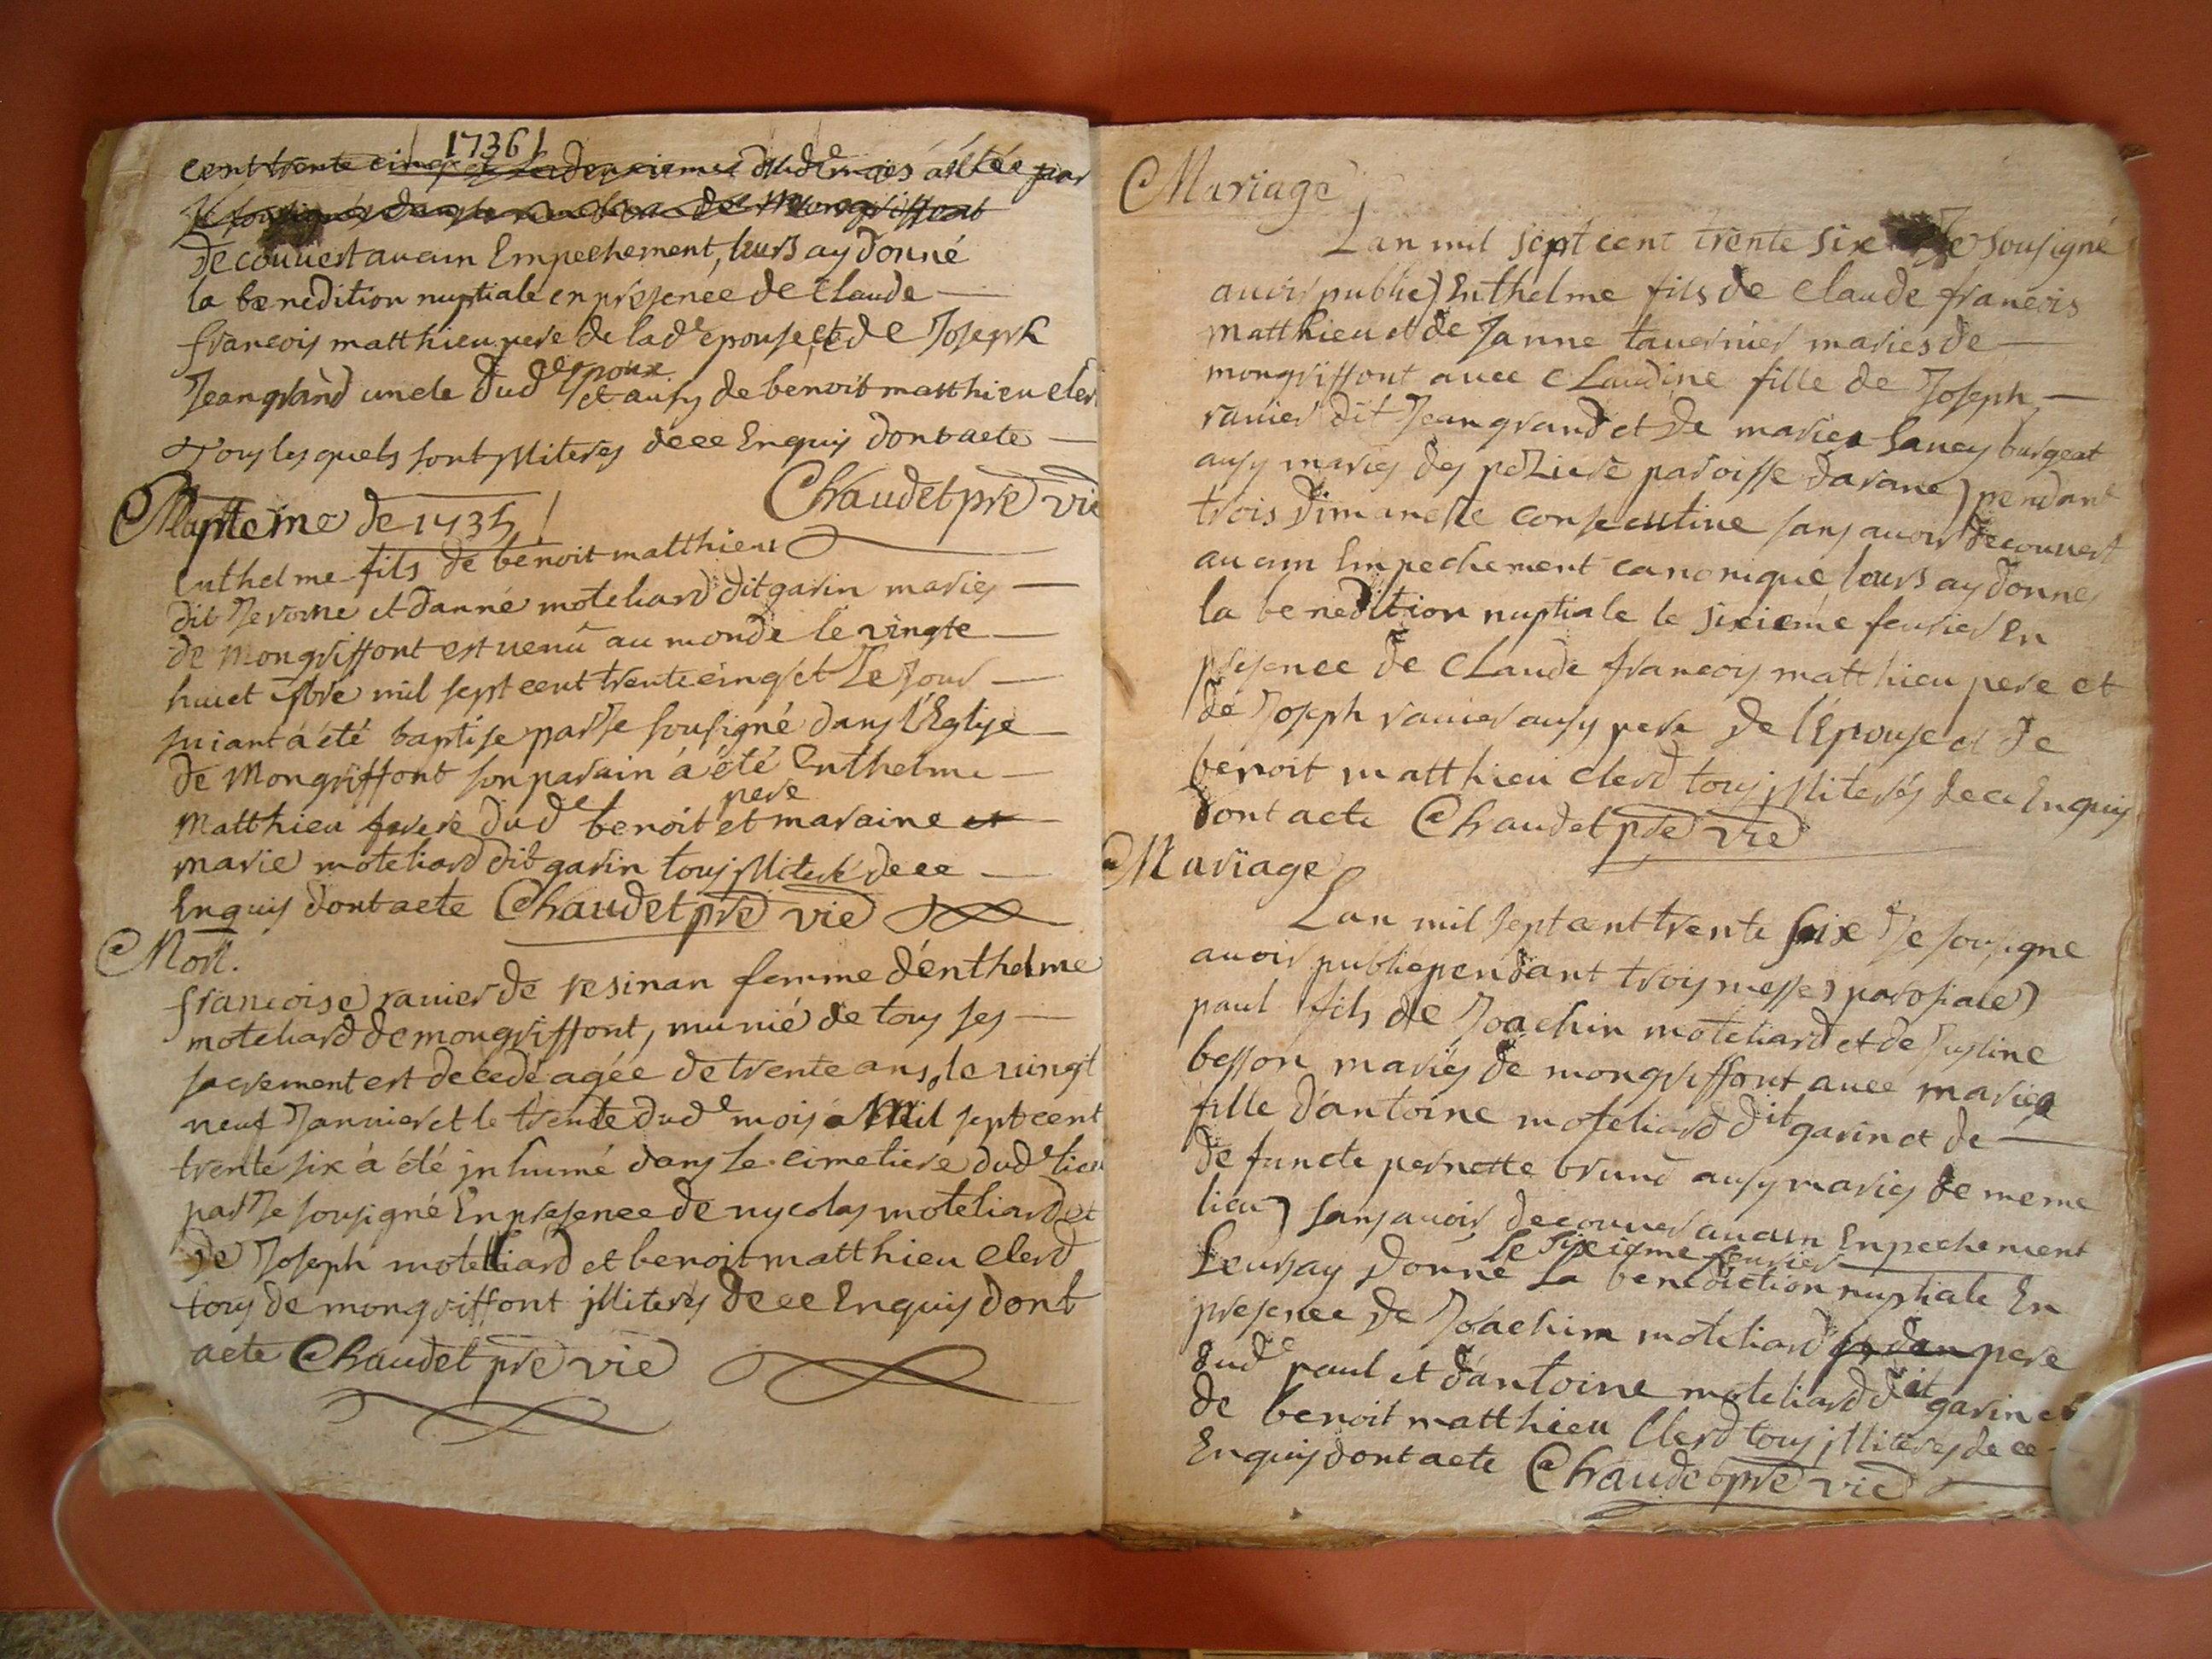 1736
cent trente cinq et le deuxieme dud.e mois a été par
Je sousigné dans le de Mongriffont
Decouuert aucun Empechement, leurs ay donné
la benedition nuptiale en presence de Claude
francois matthieu pere de lad.e epouse et de Joseph
Jeangrand uncle dud.e epoux et ausy de benoit matthieu cler
Tous les quels sont jlliterés de ce Enquis dont acte
Chaudet pre vic
Bapteme de 1735
Enthelme fils de benoit matthieu
dit Jerome et danné moteliard dit garin mariés
de Mongriffont est uenu au monde le vingte
huiet mil sept cent trente cinq et le Jour
suiant a été baptise par Je sousigné dans l'Eglise
de Mongriffont son parain à été Enthelme
pere
Matthieu frere dud.e benoit et maraine et
marie moteliard dit garin tous jlliteré de ce
Enquis dont acte Chaudet pre vic
Mort.
francoise rauier de resinan femme d'enthelme
moteliard de mongriffont, munié de tous ses
sacrement est decedé agée de trente ans, le uingt
neuf Januier et le trente dud.e mois Mil sept cent
trente six à été jnhumé dans le cimetiere dud.e lieu
par Je sousigné En presence de nycolas moteliard et
de Joseph moteliard et benoit matthieu clerd
tous de mongriffont jlliterés de ce Enquis dont
acte Chaudet pre vic
Mariage
Lan mil sept cent trente six Je sousigné
auoir publié Enthelme fils de claude francois
matthieu et de Janne tauernier mariés de
mongriffont auec Claudine fille de Joseph
rauier dit Jeangrand et de marie sancy burgeat
ausy mariés des peziere paroisse darane pendant
trois Dimanche consecutiue sans auoir decouuert
aucun Empechement canonique leurs ay donné
la benedition nuptiale le sixieme feurier En
presence de Claude francois matthieu pere et
de Joseph rauier ausy pere de l'Epouse et de
benoit matthieu clerd tous jlliterés de ce Enquis
dont acte Chaudet pre vic
Mariage
Lan mil sept cent trente six Je sousigne
auoir publié pendant trois messes parosiale
paul fils de Joachin moteliard et de Justine
besson mariés de mongriffont auec marie
fille d'antoine moteliard dit garin et de
defuncte pernette brund ausy mariés de meme
lieu sans auoir decouuer aucun Enpechement
le sixieme feurier
Leurs ay donné la benediction nuptiale En
presence de Joachim moteliard pere
dud.e paul et d'antoine moteliard dit garin et
de benoit matthieu Clerd tous jlliterés de ce
Enquis dont acte Chaudet pre vic